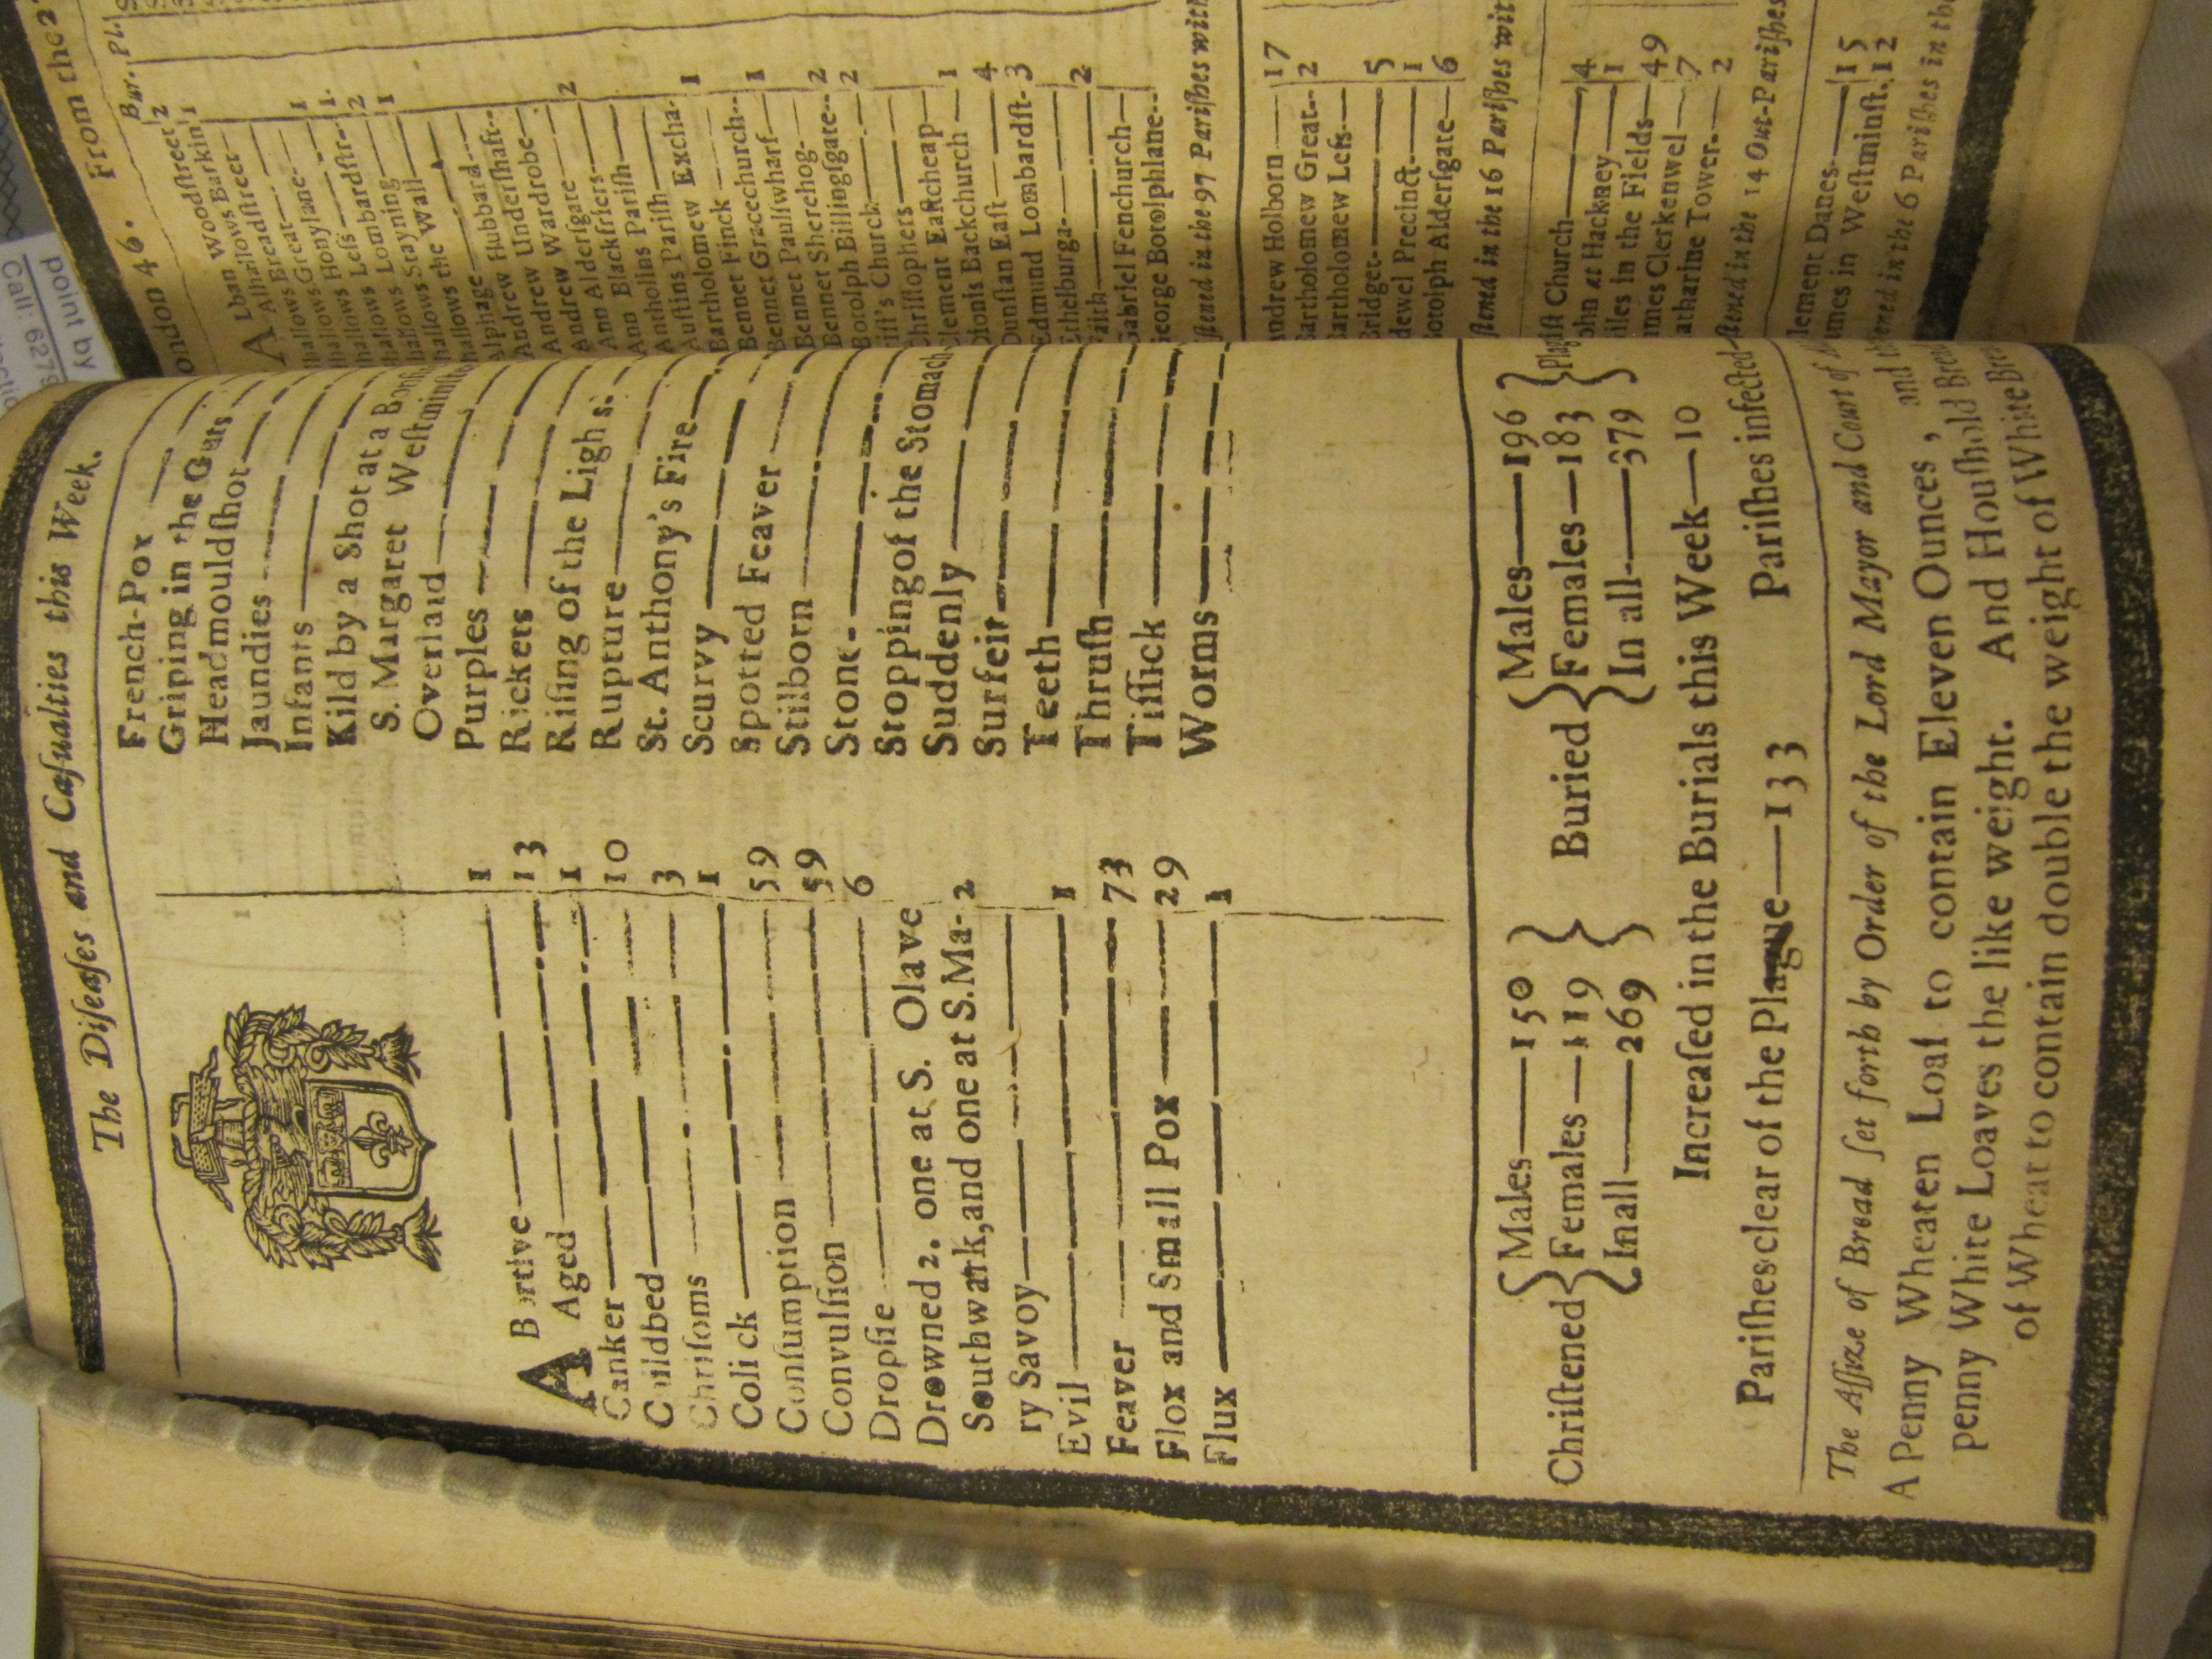 The Diſeaſes and Caſualties this Week.
ABortive 1
Aged 13
Canker 1
Childbed 10
Chriſoms 3
Colick 1
Conſumption 59
Convulſion 59
Dropſie 6
Drowned 2. one at S. Olave
Southwark, and one at S. Ma- 2
ry Savoy
Evil 1
Feaver 73
Flox and Small Pox 29
Flux 1
French-Pox
Griping in the Guts
Headmouldſhot
Jaundies
Infants
Kild by a Shot at a
S. Margaret Weſtminſt
Overlaid
Purples
Rickets
Riſing of the Lighs.
Rupture
St. Anthony's Fire
Scurvy
Spotted Feaver
Stilborn
Stone
Stopping of the Stomach
Suddenly
Surfeit
Teeth
Thruſh
Tiſſick
Worms
Chriſtened { Males—150
Females—119
In all—269 }
Buried { Males—196
Females—183
In all—379 } Plag
Increaſed in the Burials this Week—10
Pariſhes clear of the Plague—133 Pariſhes infected
The Aſſize of Bread ſet forth by Order of the Lord Mayor and Court of
A Penny Wheaten Loaf to contain Eleven Ounces, and
Penny White Loaves the like weight. And Houſhold
of Wheat to contain double the weight of White
ondon 46. From the 2
Bur. Pl
ALban Woodſtreet 2
Alhallows Barkin 1
Breadſtreet
hallows Great 1
hallows Honylane 1
hallows Leſs 2
hallows Lombardſtr 1
hallows Stayning
hallows the Wall
Alphage
Andrew Hubbard
Andrew Underſhaft
Andrew Wardrobe
Ann Alderſgate 2
Ann Blackfriers
Antholins Pariſh
Auſtins Pariſh
Bartholomew Excha. 1
Bennet Finck
Bennet Gracechurch 1
Bennet Paulſwharf
Bennet Sherehog
Botolph Billingſgate 2
iſt's Church 2
hriſtophers
lement Eaſtcheap
Dionis Backchurch 1
Dunſtan Eaſt 4
Edmund Lombardſt. 3
Ethelburga
Faith 2
Gabriel Fenchurch
George Botolphlane
iſtened in the 97 Pariſhes with
Andrew Holborn 17
Bartholomew Great 2
Bartholomew Leſs
Bridget 5
dewel Precinct 1
Botolph Alderſgate 6
ſtened in the 16 Pariſhes wit
iſt Church 4
ohn at Hackney 1
iles in the Fields 49
ames Clerkenwel 7
atharine Tower 2
ſtened in the 14 Out-Pariſhes
lement Danes 15
ames in Weſtminſt. 12
tened in the 6 Pariſhes in the
point by
Call: 6279